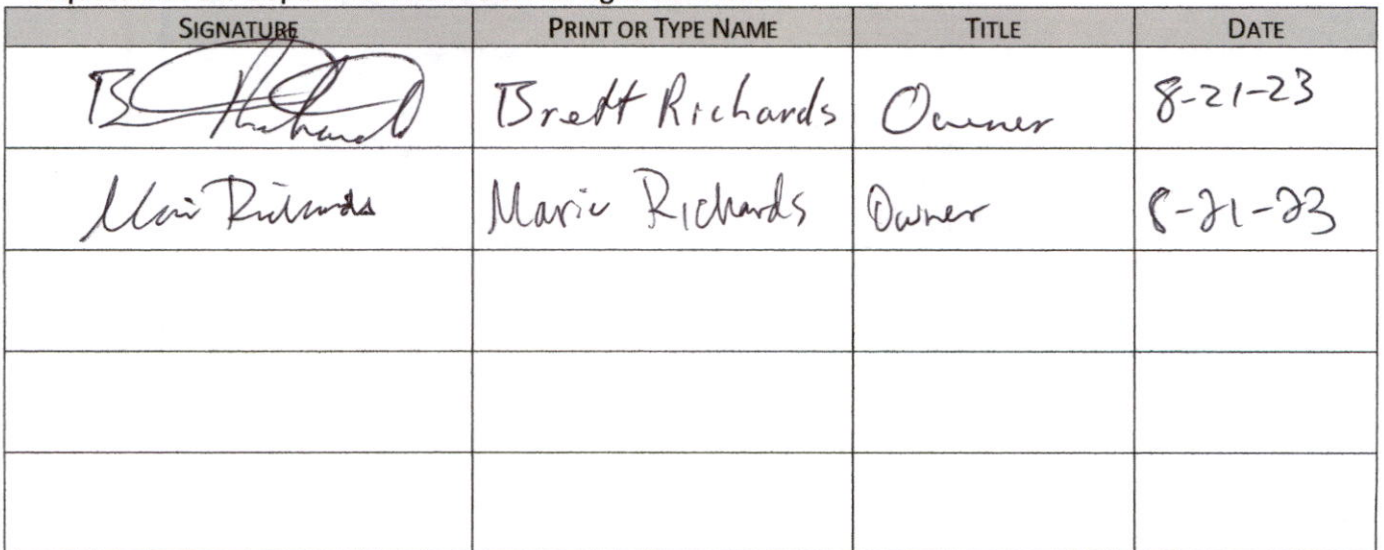 SIGNATURE PRINT OR TYPE NAME TITLE DATE
B Richards Brett Richards Owner 8-21-23
Marie Richards Marie Richards Owner 8-21-23